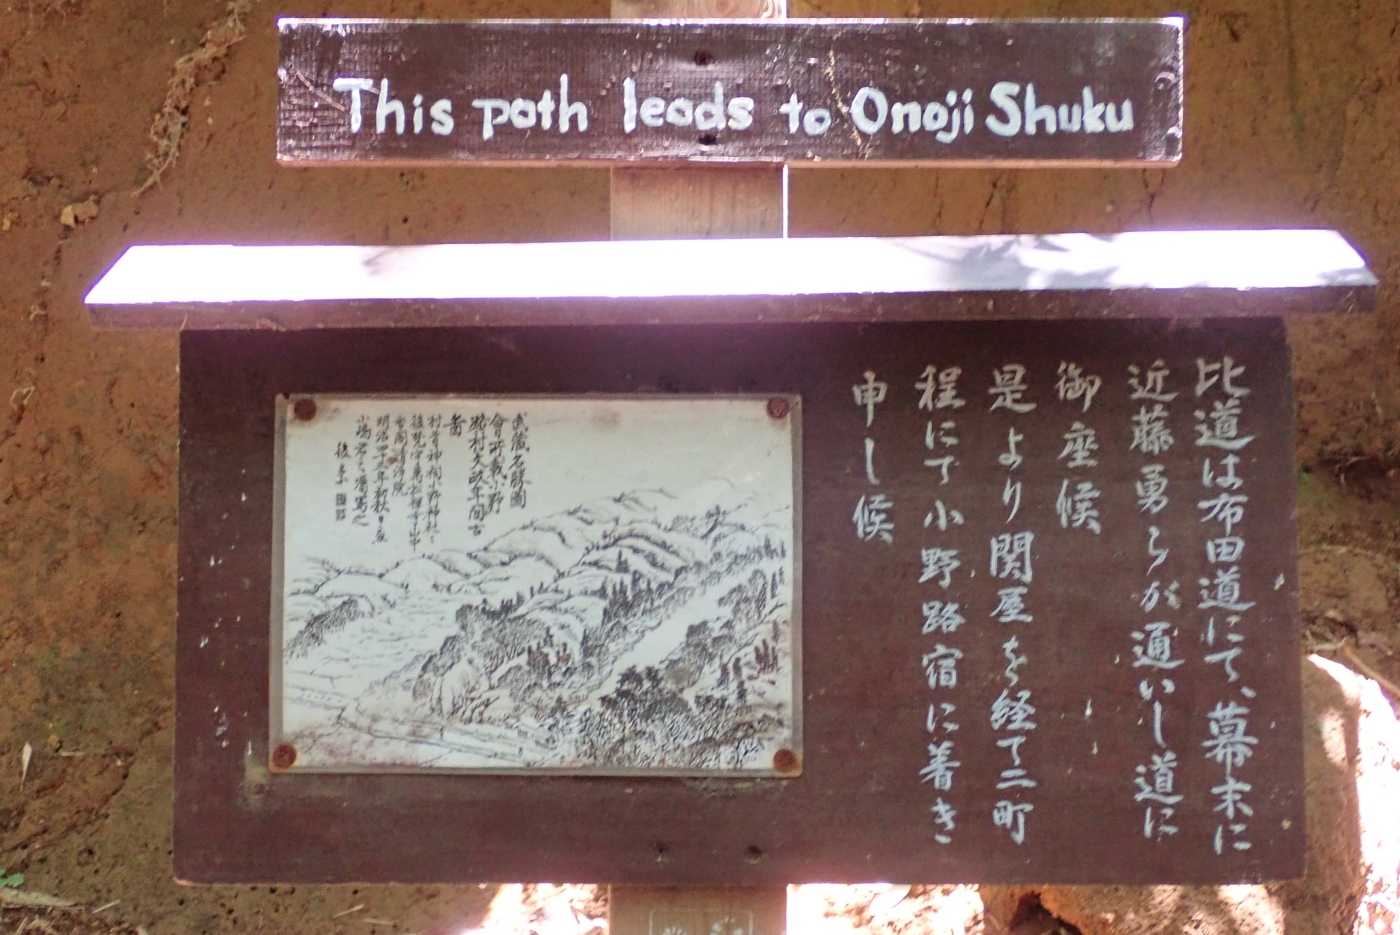 This path leads to Onoji Shuku
比道は布田道にて、幕末に
近藤勇らが通いし道に
御座候
是より関屋を経て二町
程にて小野路宿に着き
申し候
武蔵名勝圖
會所載小野
路村文政年間古
圖